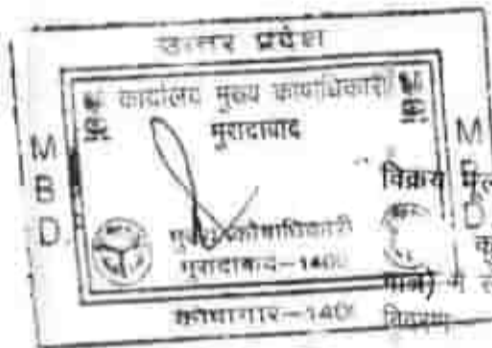 उत्तर प्रदेश
कार्यालय मुख्य कोषाधिकारी
मुरादाबाद
M
B
D
M
B
D
विक्रय मूल
मुख्य कोषाधिकारी
मुरादाबाद-140
कोषागार-140
विवरण